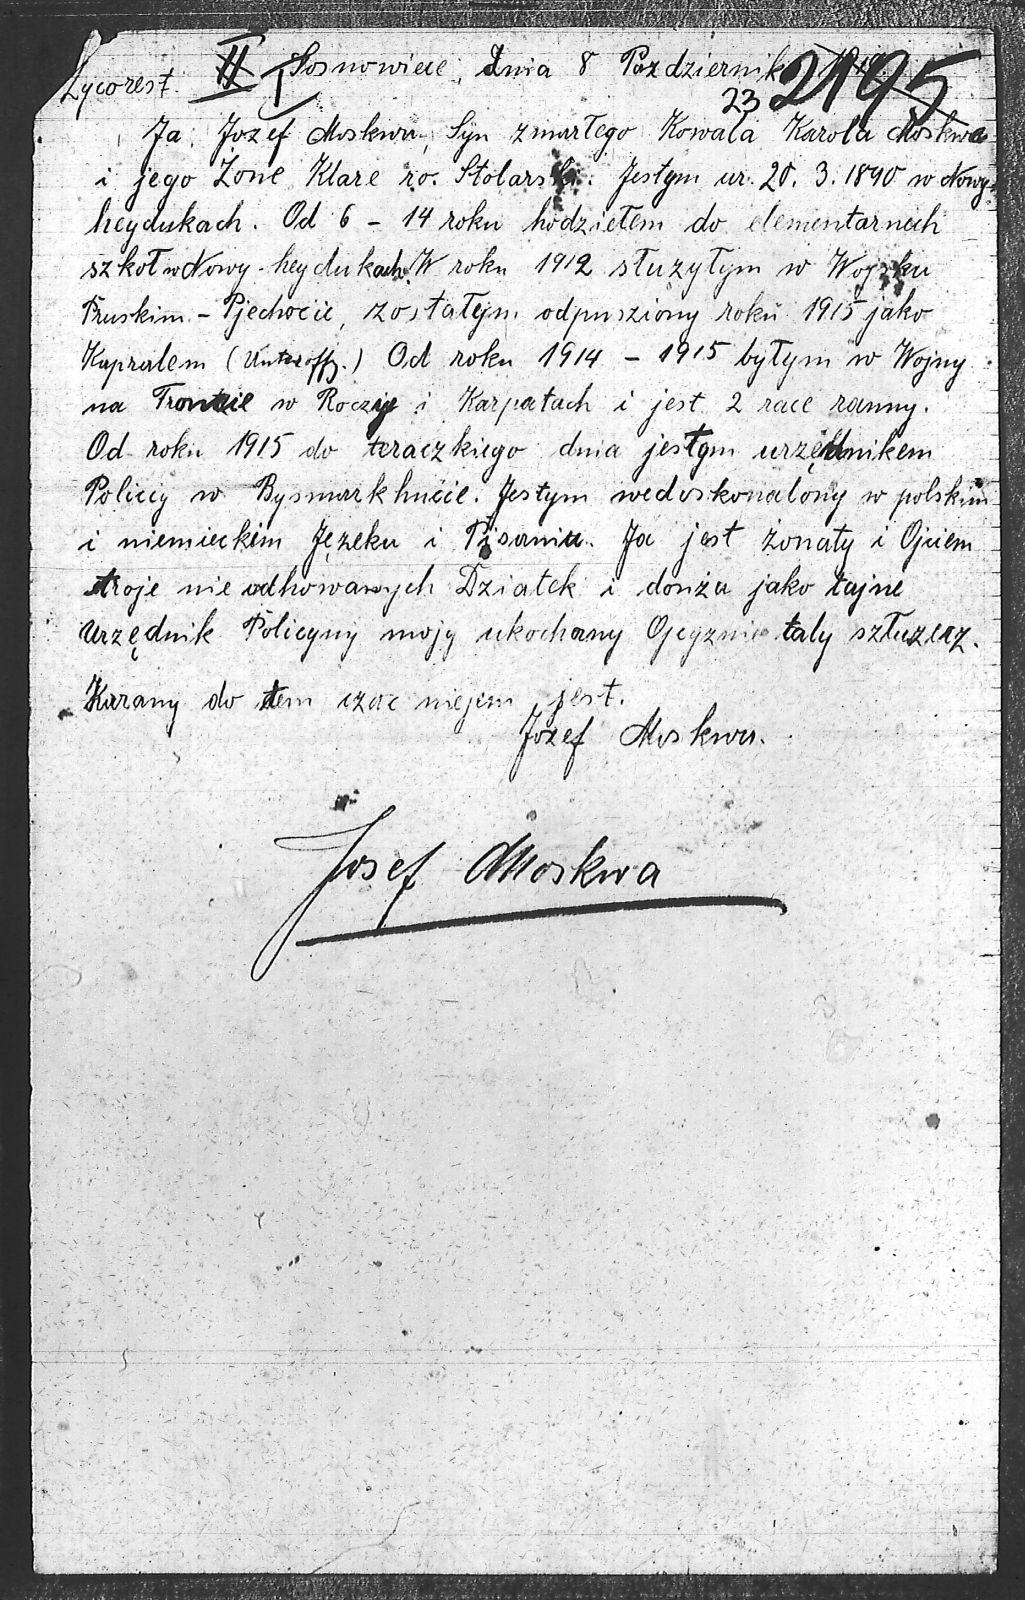 Zycorest. II I Sosnowiece, Dnia 8 Pazdziernik 1919.
23 2195
Ja, Jozef Moskwa, Syn zmarłego Kowala Karola Moskwa
i jego Zone Klare ro. Stolarski. Jestym ur. 20. 3. 1890 w Nowy-
heydukach. Od 6 - 14 roku hodziełem do elementarnech
szkoł w Nowy-heydukach. W roku 1912 słuzyłym w Wojsku
Pruskim - Pjechocie, zostałejm odpusziony roku 1915 jako
Kapralem (Unteroffz.) Od roku 1914 - 1915 byłym w Wojny
na Froncie w i Karpatach i jest 2 race ranny.
Od roku 1915 do teraczkiego dnia jestym urzędnikem
Policiy w Bysmarkhucie. Jestym wedoskonalony w polskim
i niemieckim Języku i Pisaniu. Ja jest żonaty i Ojciem
troje nie odhowanych Dziatek i donża jako tajne
Urzędnik Policyny mojy ukochany Ojcyznie taly sztuzerz.
Karany do tem czac niejem jest.
Jozef Moskwa.
Josef Moskwa